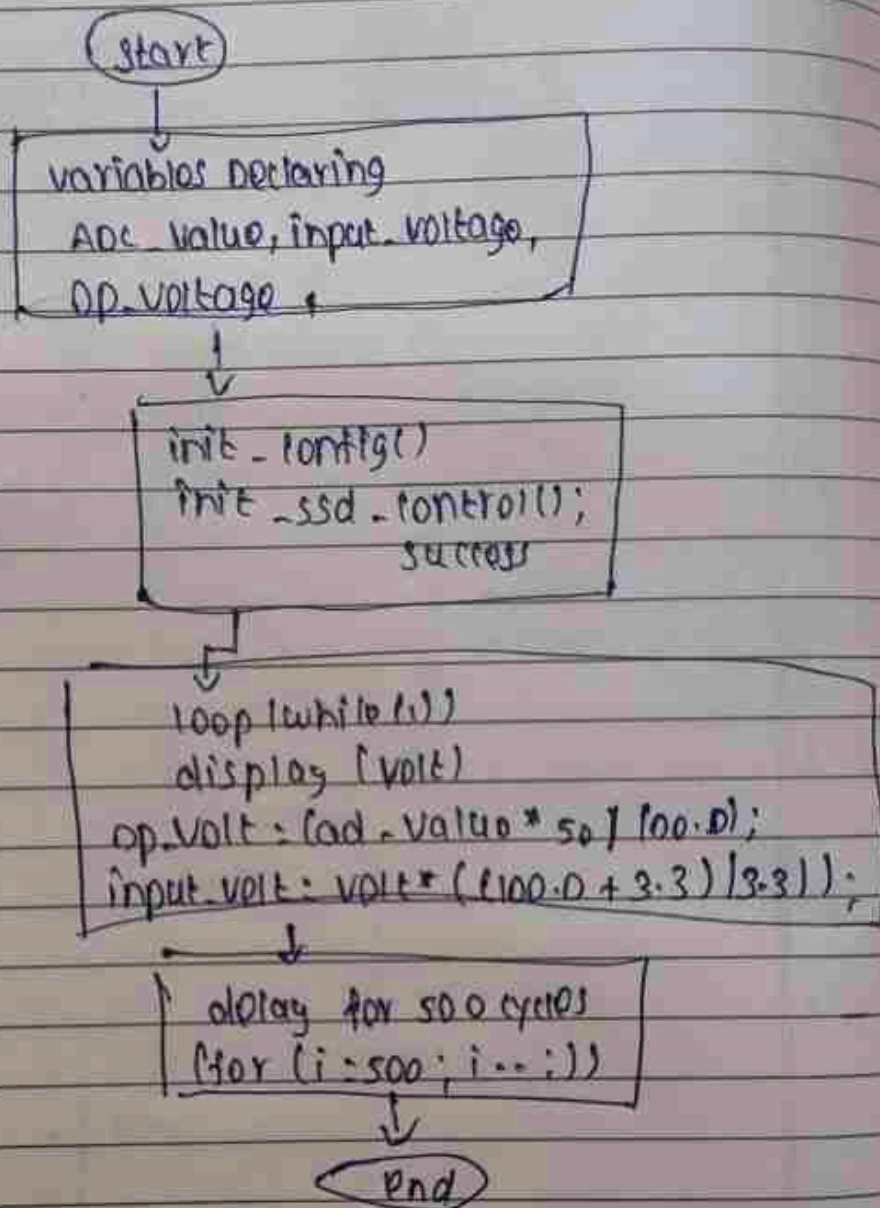 start
variables Declaring
ADC_value, input_voltage,
op_voltage
init_config()
init_ssd_control();
success
loop (while(1))
display (volt)
op_volt = (ad_value * 50 / 100.0);
input_volt = volt * ((100.0 + 3.3) / 3.3));
delay for 500 cycles
(for (i = 500; i--;))
end